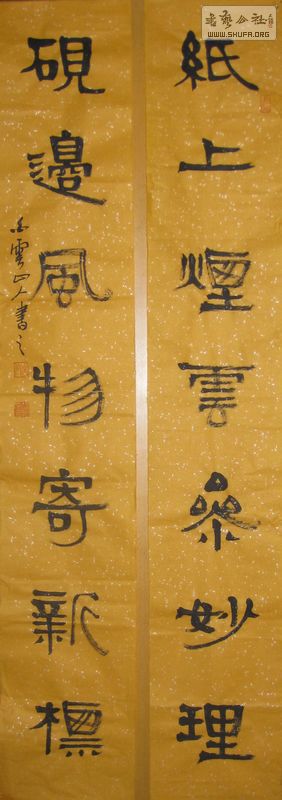 紙上煙雲參妙理
硯邊風物寄新標
白雲山人書之
書藝公社
WWW.SHUFA.ORG